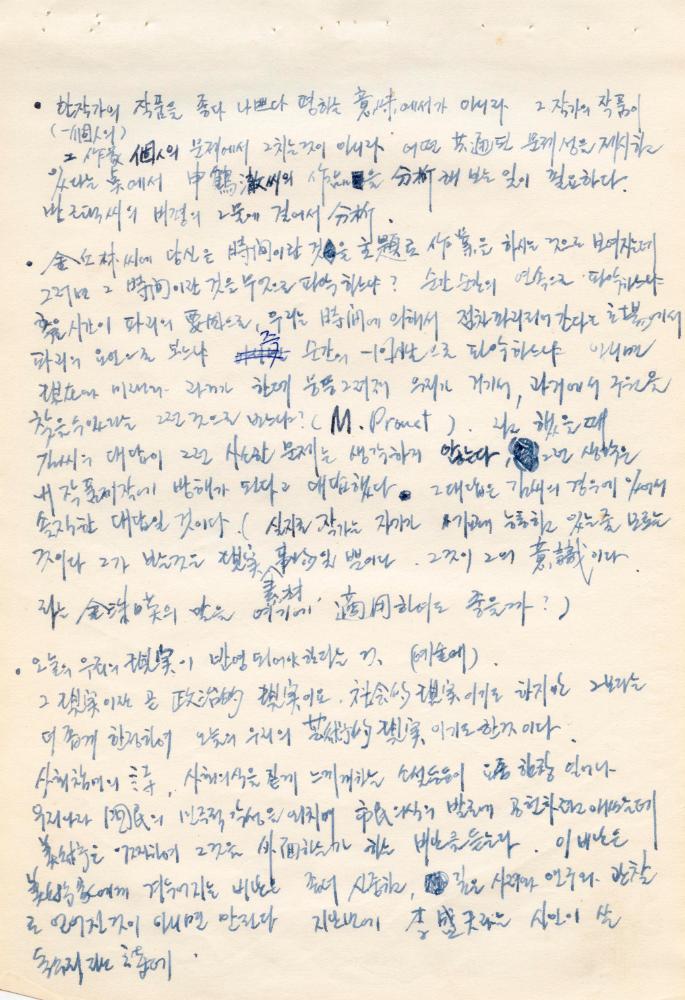 • 한 작가의 작품을 좋다 나쁘다 평하는 意味에서가 아니라 그 작가의 작품이
(一個人의)
그 作家 個人의 문제에서 그치는 것이 아니라 어떤 共通된 문제성을 제시하고
있다는 点에서 申鶴澈씨의 作品을 分析해 보는 일이 필요하다.
씨의 비평의 그물에 걸어서 分析.
• 金 林씨에 당신은 時間이란 것을 主題로 作業을 하시는 것으로 보여지는데
그러면 그 時間이란 것을 무엇으로 파악하느냐? 순간순간의 연속으로 파악하느냐
혹은 시간이 파괴의 要因으로, 우리는 時間에 의해서 점차 파괴되어 간다는 立場에서
파괴의 요인으로 보느냐 즉 순간의 으로 파악하느냐 아니면
現在와 미래와 과거가 한데 우리가 거기서, 과거에서 구원을
찾을 수 있다는 그런 것으로 보느냐? (M. Proust). 라고 했을 때
김씨의 대답이 그런 문제는 생각하지 않는다, 그런 생각은
내 작품제작에 방해가 된다고 대답했다. 그 대답은 김씨의 경우에 있어서
솔직한 대답일 것이다. (실지로 작가는 자기가 있는줄 모르는
것이다 그가 보는 것은 現実 일 뿐이다. 그것이 그의 意識이다.
素材
라는 金珠暎의 말을 여기에 適用하여도 좋을까?)
• 오늘의 우리의 現実이 반영되어야 한다는 것. (예술에).
그 現実이란 곧 政治的 現実이요. 社会的 現実이기도 하지만 그보다는
더 좁게 한정하여 오늘의 우리의 芸術的 現実이기도 한 것이다.
사회참여의 詩, 사회의식을 짙게 느끼게 하는 소설 등등이
우리나라 国民의 민족적 각성을 위하여 市民의식의 발로에 공헌하려고 애썼는데
美術家는 어찌하여 그것을 外面하는가 하는 비난을 듣는다. 이 비난은
美術家에게 겨누어지는 비난은 좀더 신중하고, 깊은 사려와 연구와 관찰
로 얻어진 것이 아니면 안된다 지난번에 李盛夫라는 시인이 쓴
라는 글에.